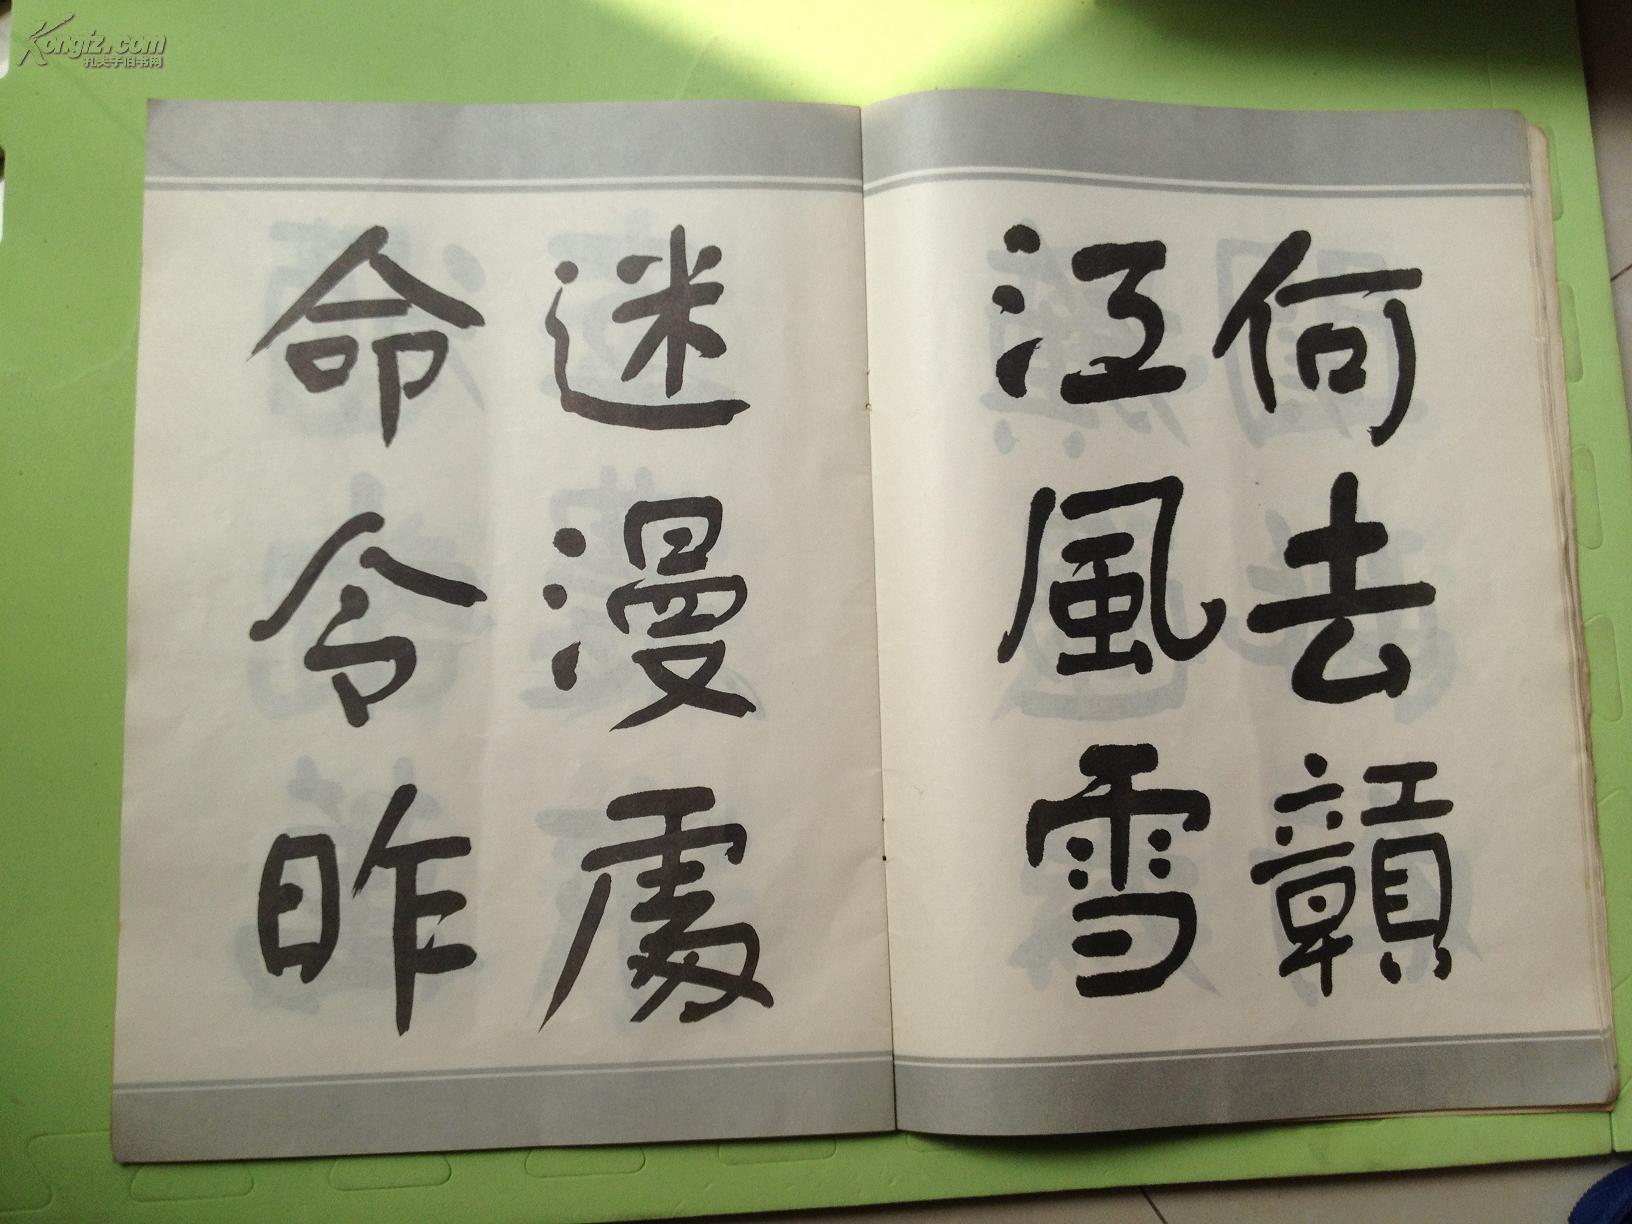 何去贛
江風雪
迷漫處
命令昨
Kongfz.com
孔夫子旧书网